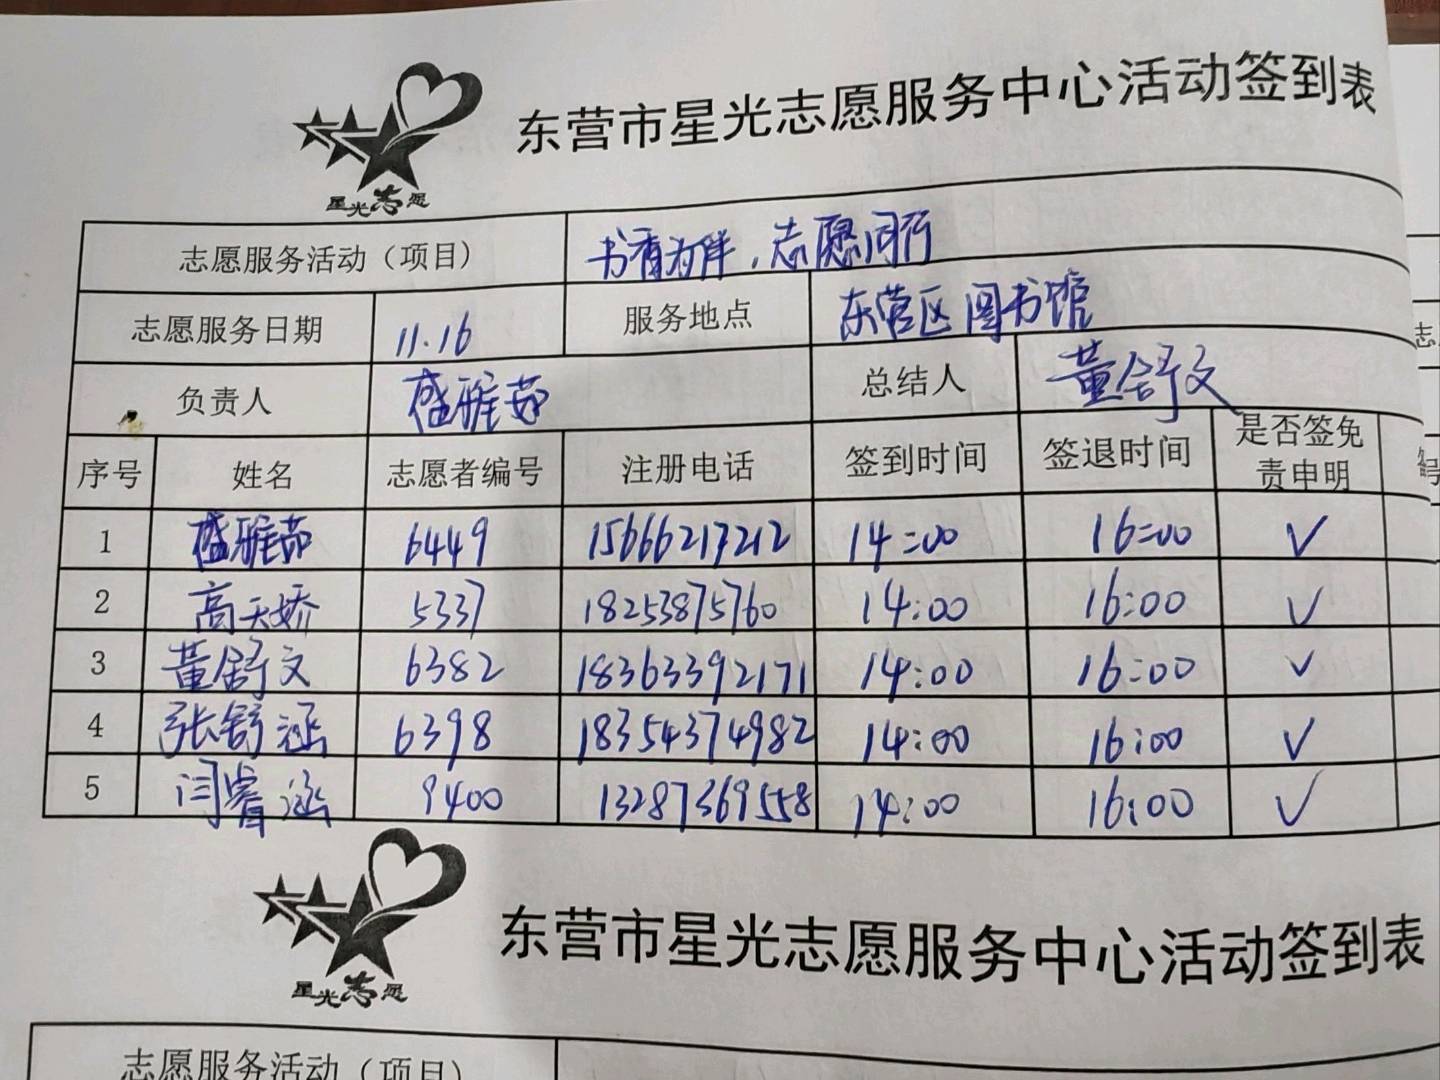 东营市星光志愿服务中心活动签到表
星光志愿
志愿服务活动（项目） 书香为伴，志愿同行
志愿服务日期 11.16 服务地点 东营区图书馆
负责人 盛雅茹 总结人 董舒文
序号 姓名 志愿者编号 注册电话 签到时间 签退时间 是否签免责申明
1 盛雅茹 6449 15666217212 14:00 16:00 √
2 高天娇 5337 18253875760 14:00 16:00 √
3 董舒文 6382 18363392171 14:00 16:00 √
4 张舒涵 6398 18354374982 14:00 16:00 √
5 闫睿涵 9400 13287369558 14:00 16:00 √
东营市星光志愿服务中心活动签到表
星光志愿
志愿服务活动（项目）